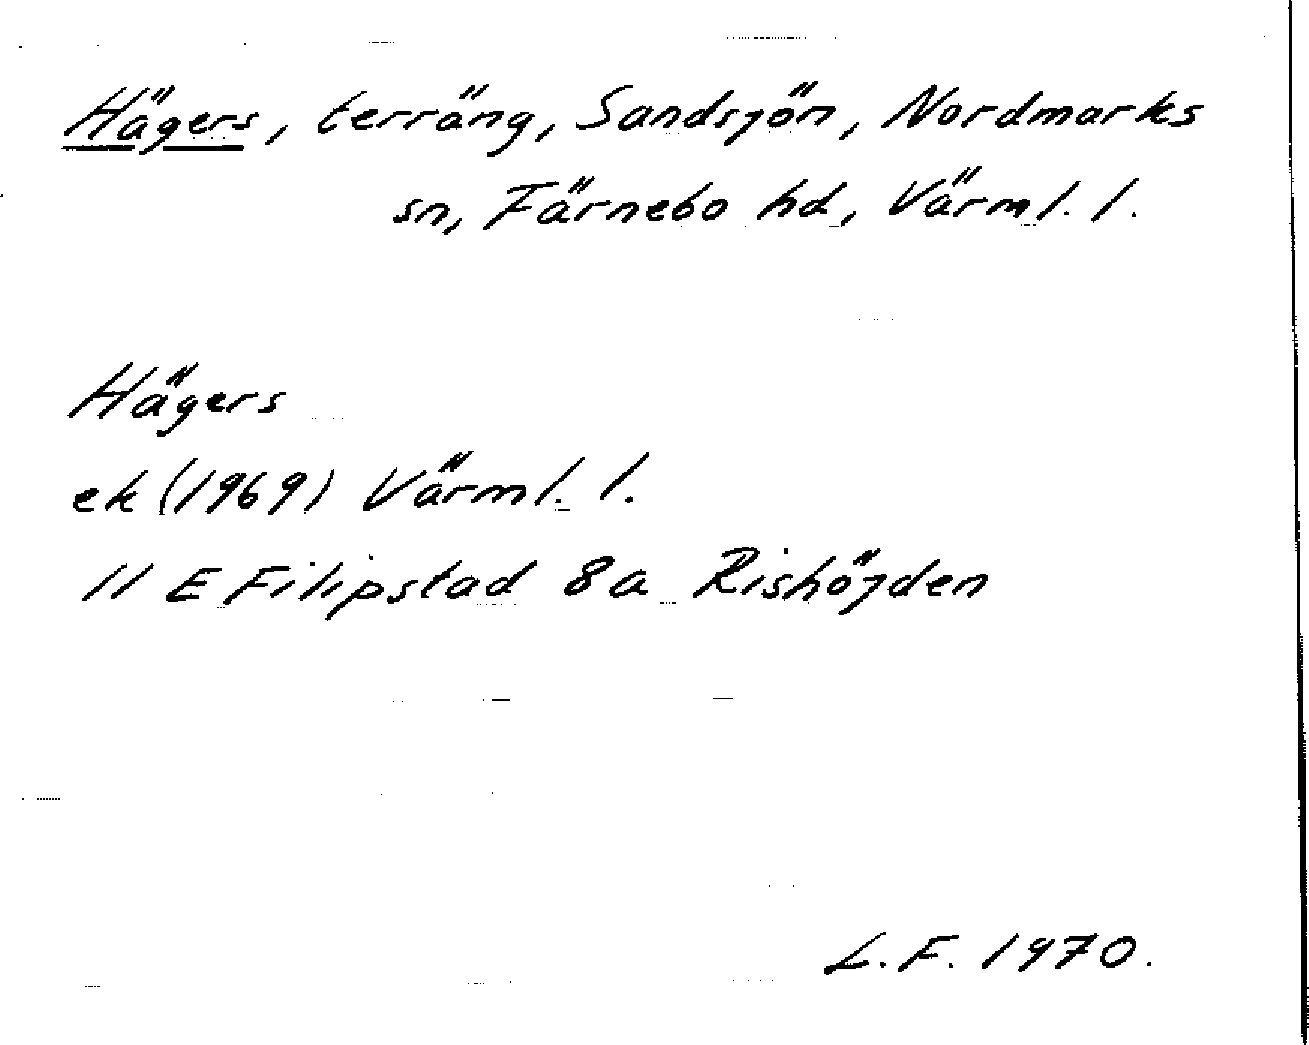 Hägers, terräng, Sandsjön, Nordmarks
sn, Färnebo hd, Värml. l.
Hägers
ek (1969) Värml. l.
11 E Filipstad 8a Rishöjden
L.F. 1970.